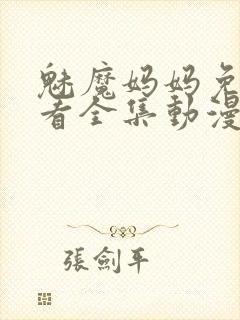 魅魔妈妈免
看全集動漫
張劍平